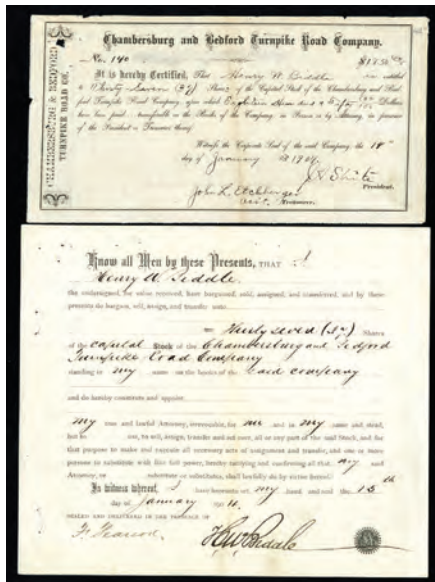 CHAMBERSBURG & BEDFORD
TURNPIKE ROAD CO.
Chambersburg and Bedford Turnpike Road Company.
No. 140
It is hereby Certified, That Henry W. Biddle is entitled
to Thirty Seven (37) Shares of the Capital Stock of the Chambersburg and Bed-
ford Turnpike Road Company, upon which Eighteen Hundred & Fifty Dollars
have been paid, transferable on the Books of the Company, in Person or by Attorney, in presence
of the President or Treasurer thereof.
Witness the Corporate Seal of the said Company, the 18th
day of January
President.
John L. Etchberger
Treasurer.
Know all Men by these Presents, THAT I
Henry W. Biddle
the undersigned, for value received, have bargained, sold, assigned, and transferred, and by these
presents do bargain, sell, assign, and transfer unto
Thirty seven (37) Shares
of the Capital Stock of the Chambersburg and Bedford
Turnpike Road Company
standing in my name on the books of the said Company
and do hereby constitute and appoint
my true and lawful Attorney, irrevocable, for me and in my name and stead,
but to use, to sell, assign, transfer and set over, all or any part of the said Stock, and for
that purpose to make and execute all necessary acts of assignment and transfer, and one or more
persons to substitute with like full power, hereby ratifying and confirming all that my said
Attorney, or substitute or substitutes, shall lawfully do by virtue hereof.
In witness whereof, I have hereunto set my hand and seal the 15th
day of January
SEALED AND DELIVERED IN THE PRESENCE OF
F. Pearson
HWBiddle